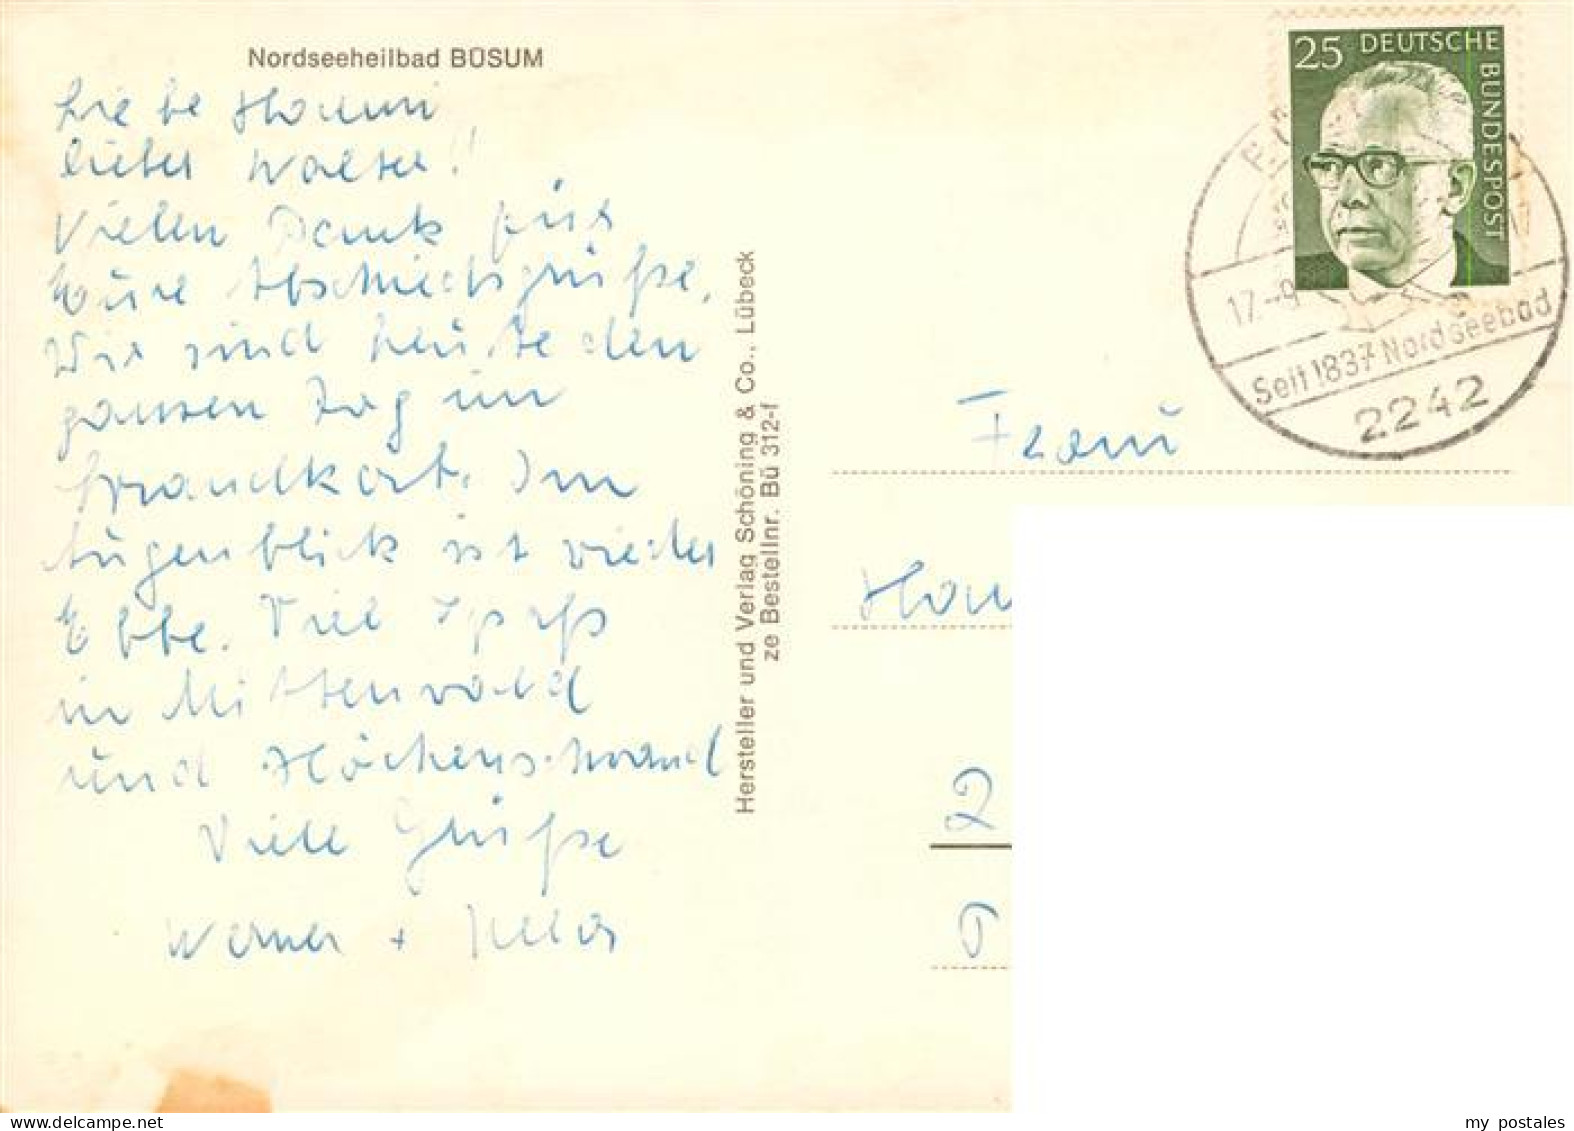 Nordseeheilbad BÜSUM
Liebe Hanni
lieber Walter!!
Vielen Dank für
Eure Abschiedsgrüße.
Wir sind heute den
ganzen Tag im
Strandkorb. Im
Augenblick ist wieder
Ebbe. Viel Spaß
in Mittenwald
und Höchenschwand
Viele Grüße
Werner +
Hersteller und Verlag Schöning & Co., Lübeck
ze Bestellnr. Bü 312-f
25 DEUTSCHE BUNDESPOST
17.-9
Seit 1837 Nordseebad
2242
Frau
Han
2
my postales